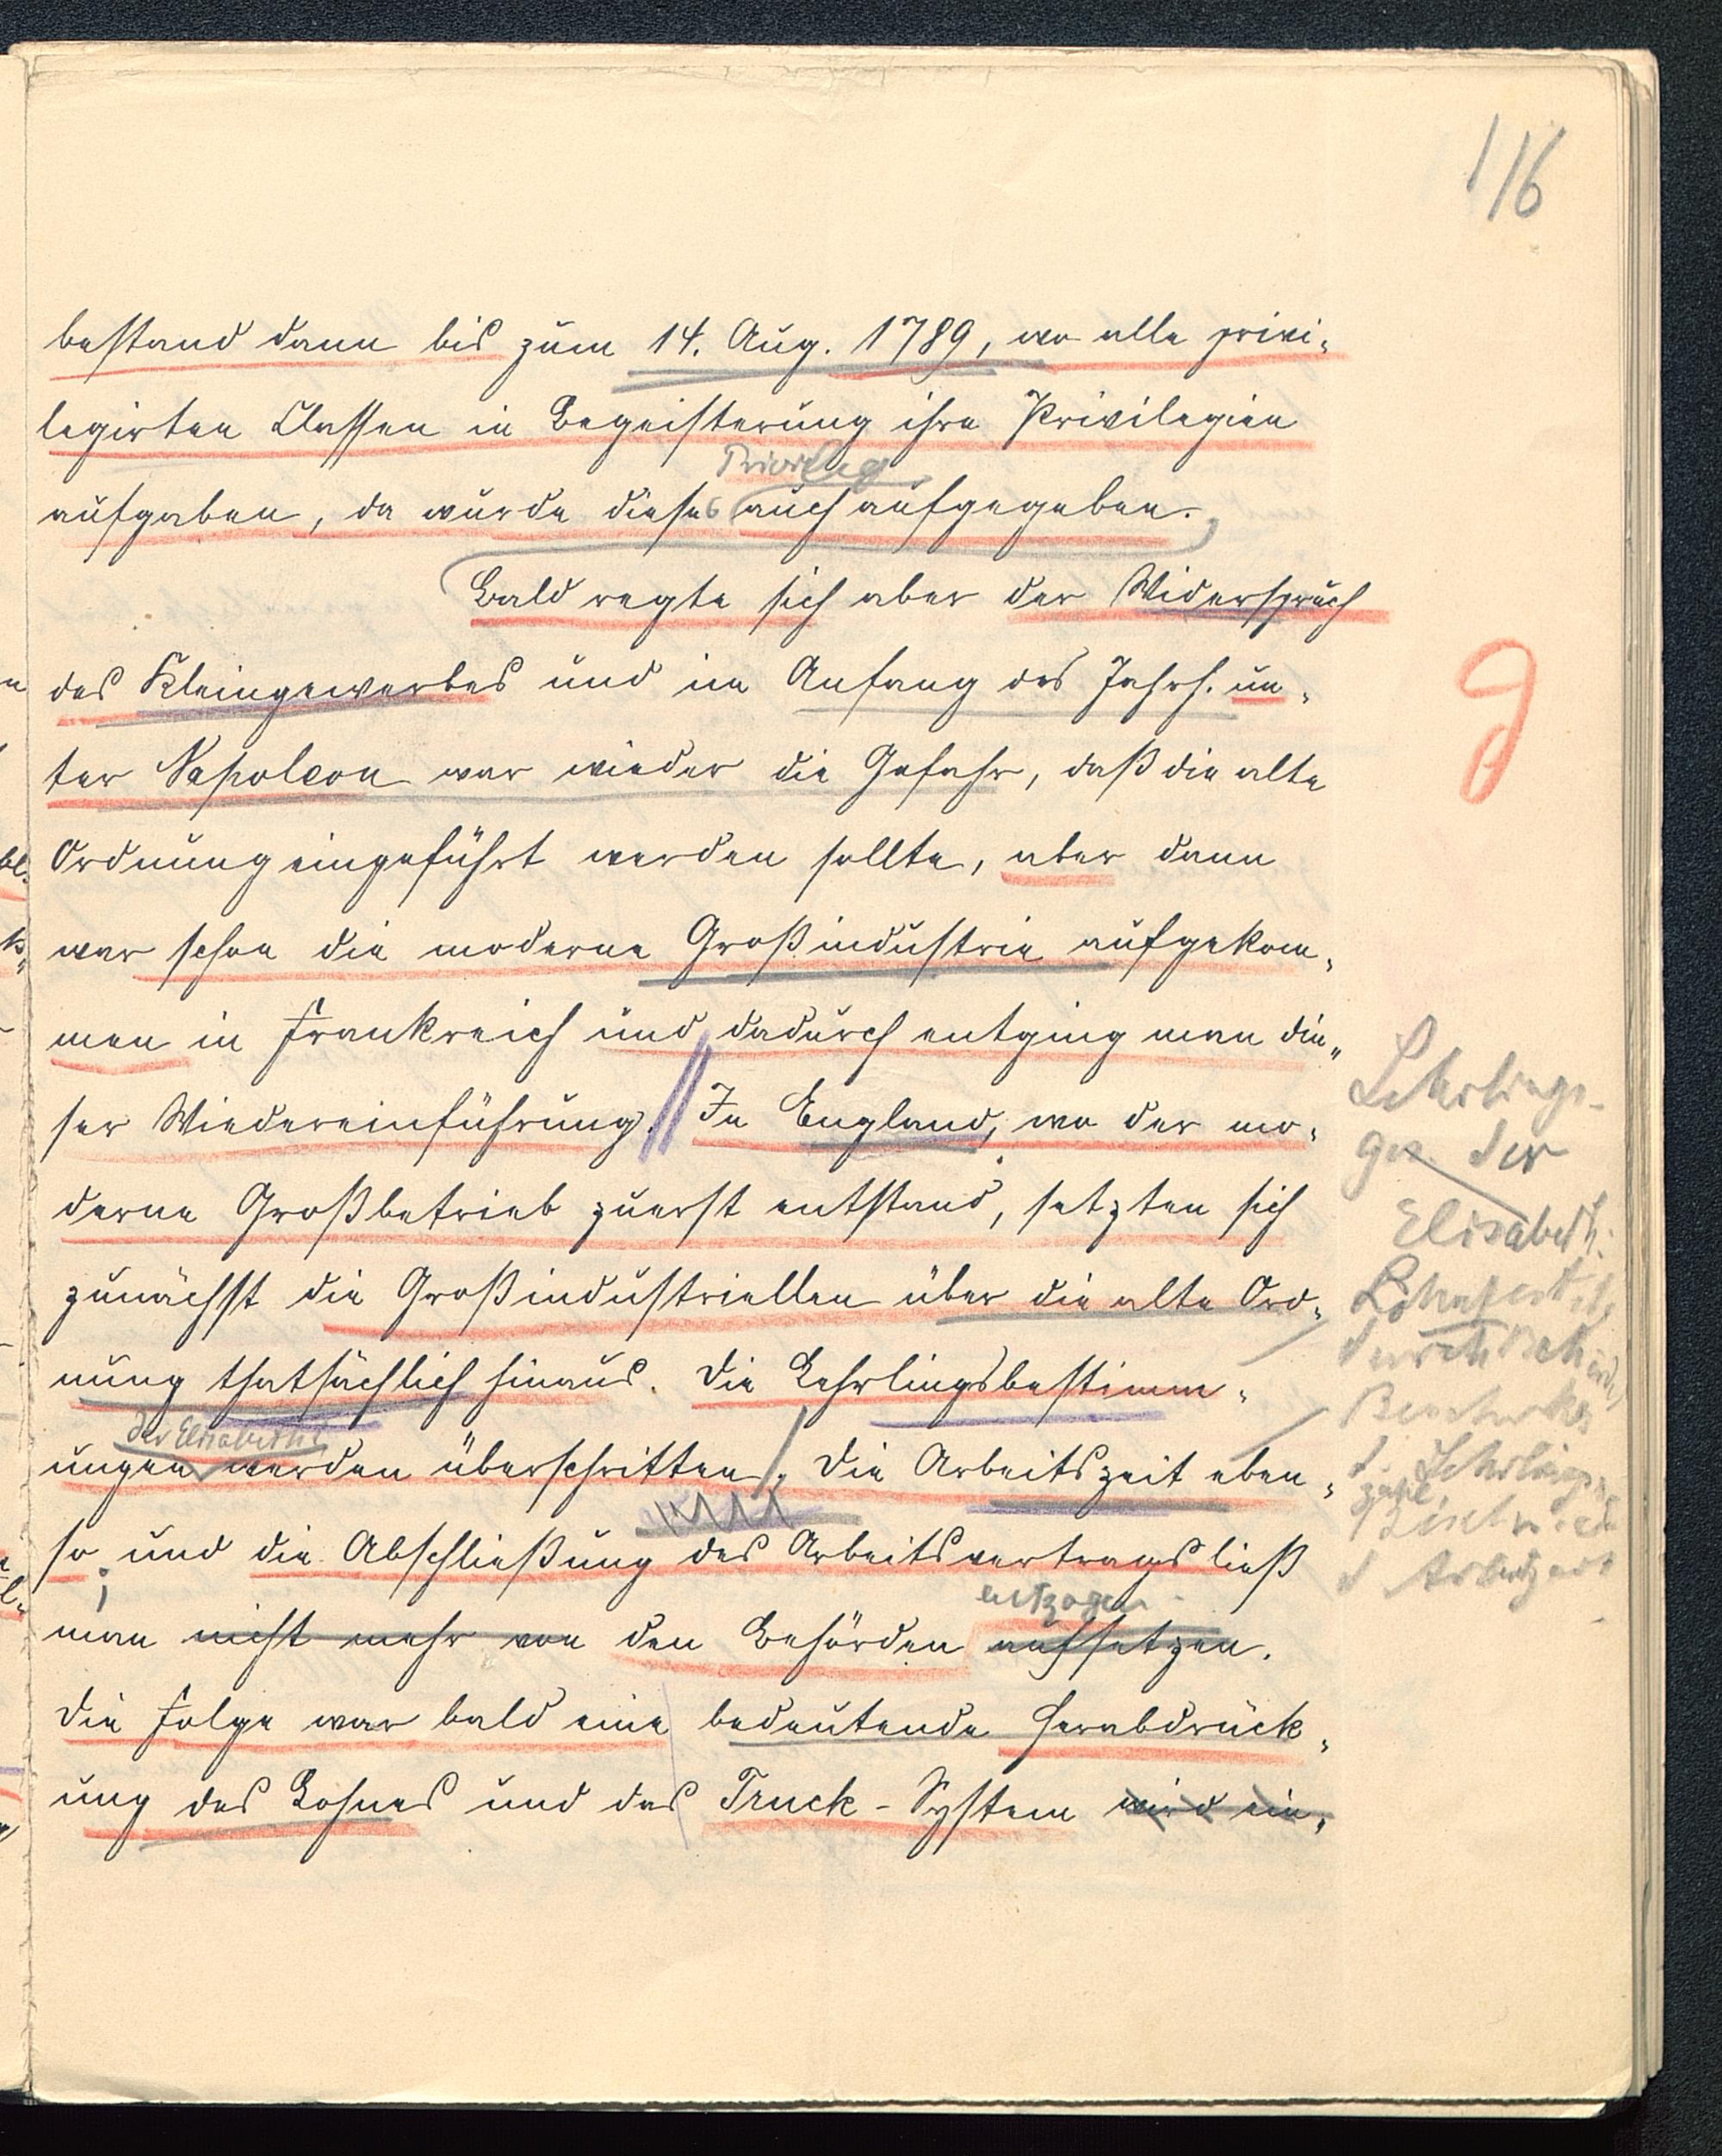 116
bestand dann bis zum 14. Aug. 1789, wo alle privi-
legirten Classen in Begeisterung ihre Privilegien
Privileg
aufgaben, da wurde dieses auch aufgegeben.
Bald regte sich aber der Widerspruch
des Kleingewerbes und im Anfang des Jahrh. un-
ter Napoleon war wieder die Gefahr, daß die alte
Ordnung eingeführt werden sollte, aber dann
war schon die moderne Großindustrie aufgekom-
men in Frankreich und dadurch entging man die-
ser Wiedereinführung. In England, wo der mo-
derne Großbetrieb zuerst entstand, setzten sich
zunächst die Großindustriellen über die alte Ord-
nung thatsächlich hinaus. Die Lehrlingsbestimm-
der Elisabeth
ungen werden überschritten, die Arbeitszeit eben-
so; und die Abschließung des Arbeitsvertrags ließ
entzogen
man nicht mehr von den Behörden aufsetzen.
Die Folge war bald eine bedeutende Herabdrück-
ung des Lohnes und das Truck-System wird ein-
Lehrlings-
ges. der
Elisabeth.
durch
d. Lehrlings-
zahl
d Arbeitszeit